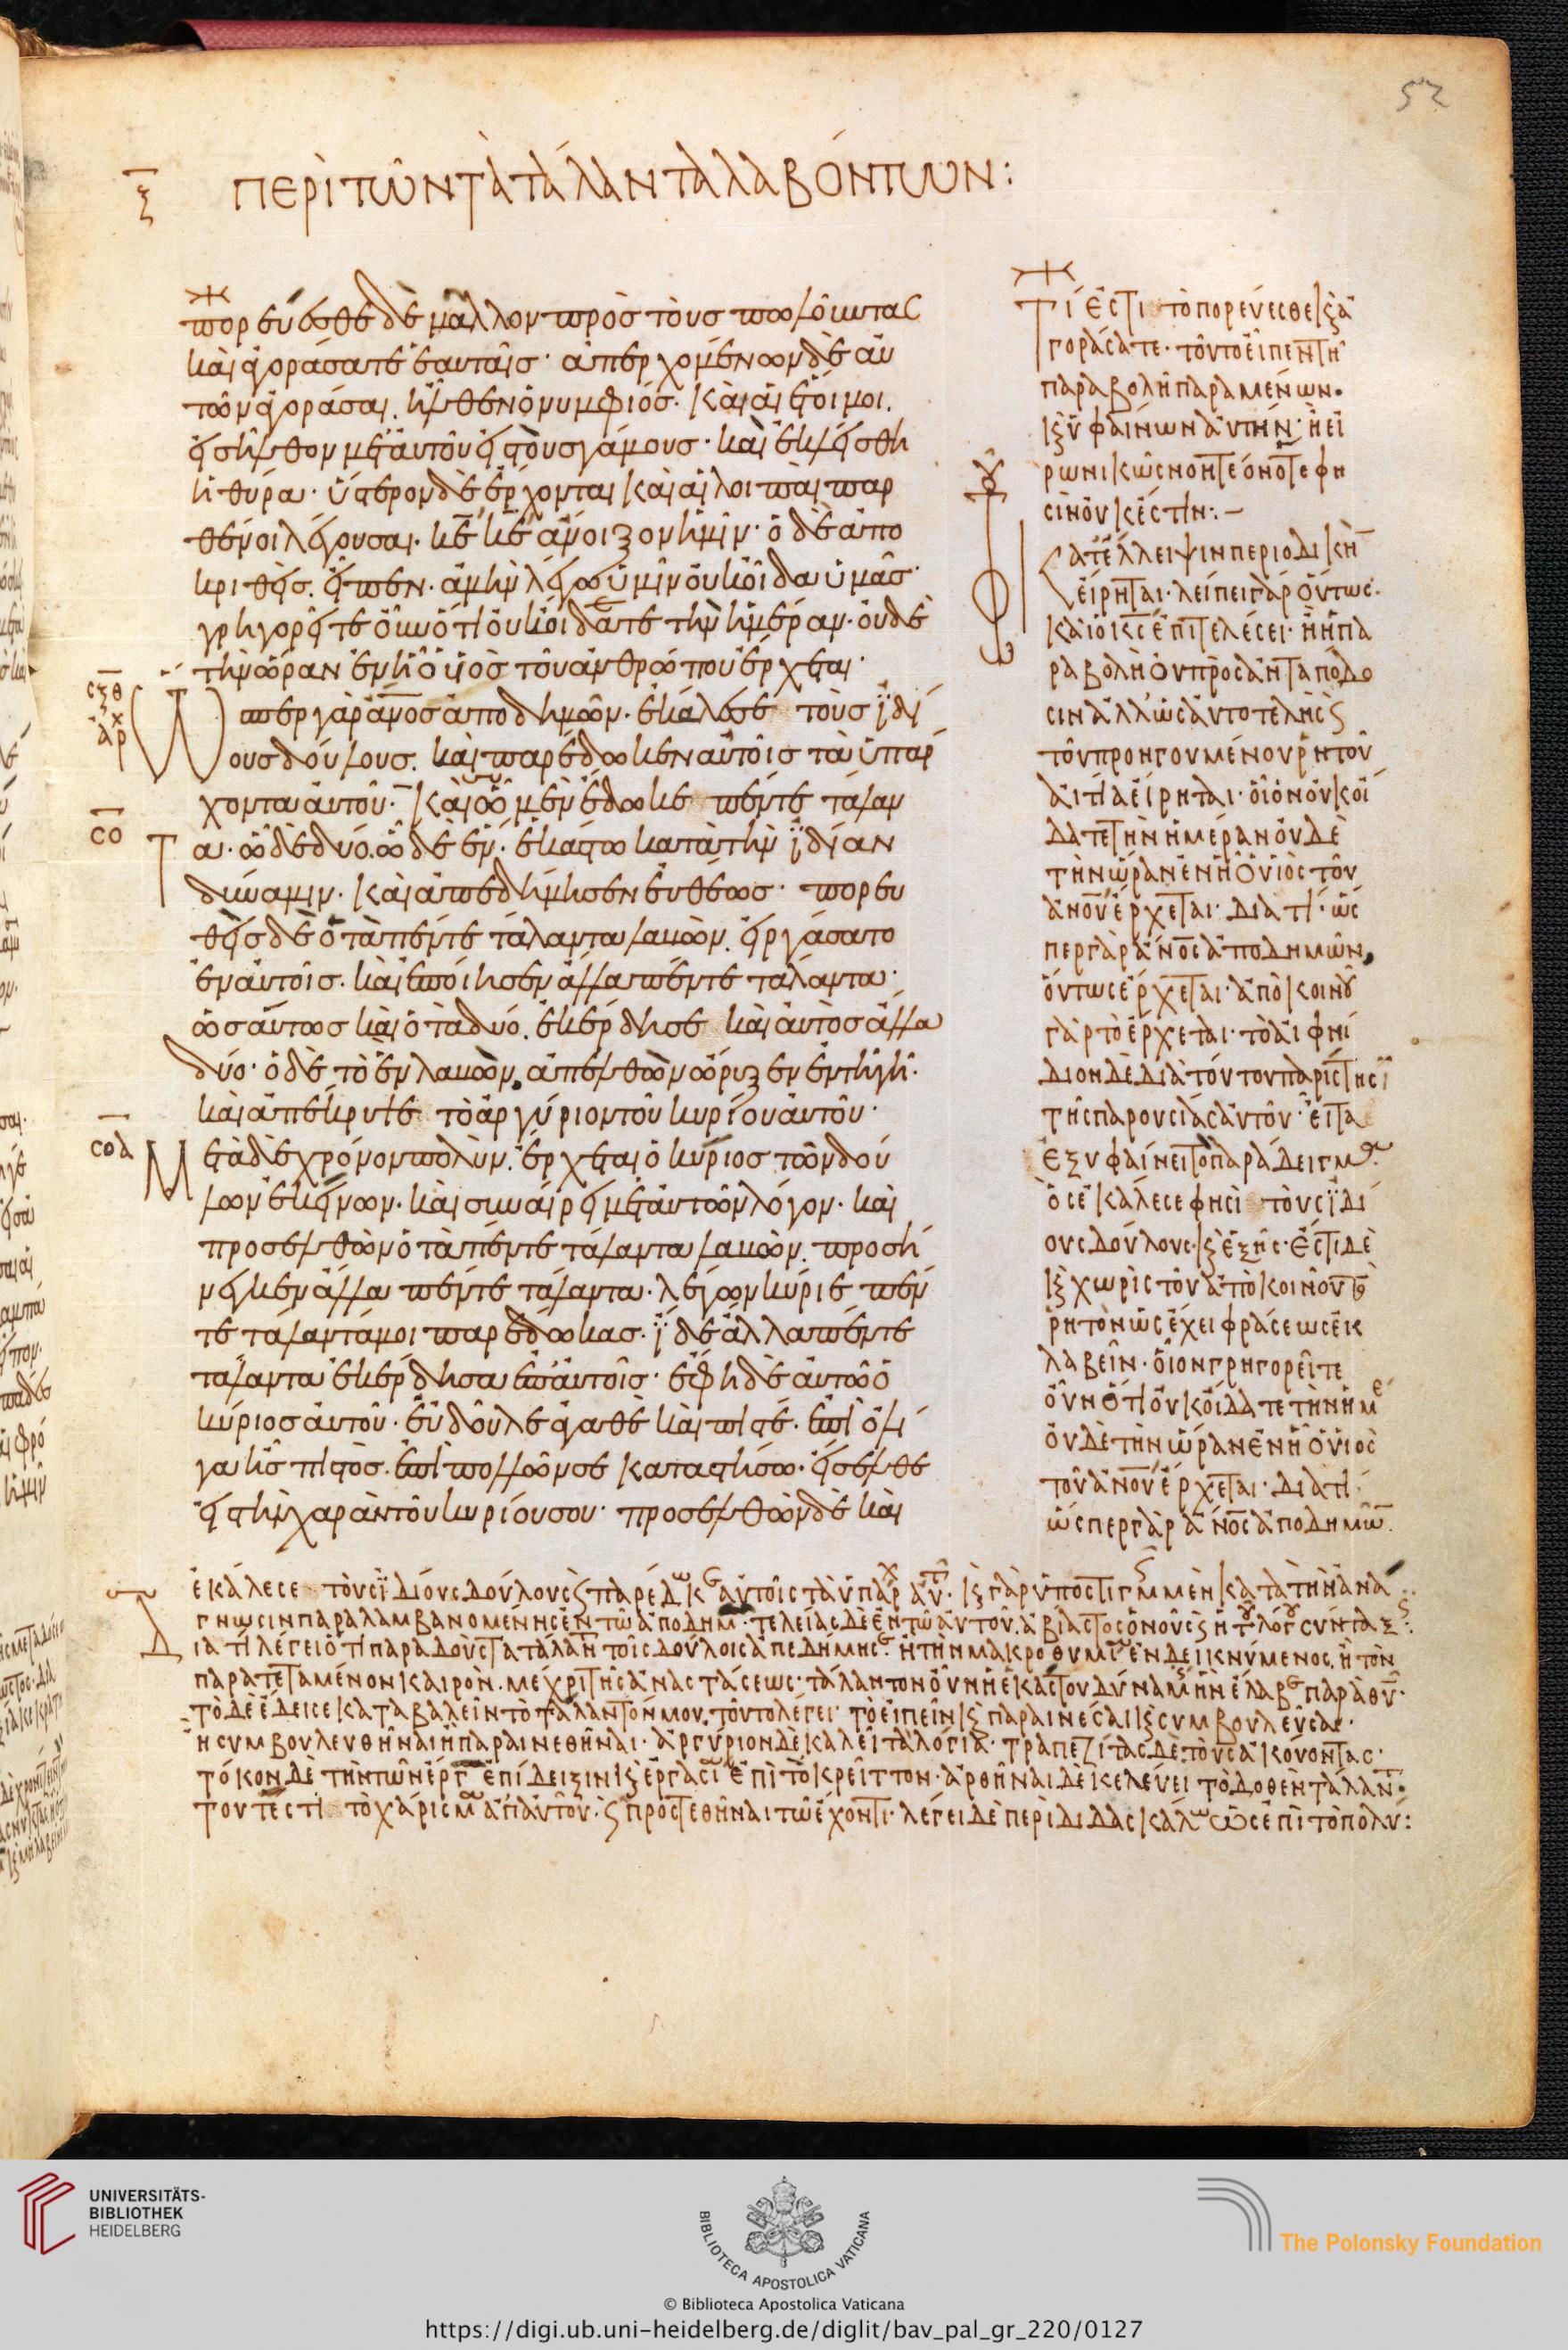 52
ξ̅ περὶ τῶν τὰ τάλαντα λαβόντων:
πορεύεσθε δὲ μᾶλλον πρὸς τοὺς πωλοῦντας
καὶ ἀγοράσατε ἑαυταῖς· ἀπερχομένων δὲ αὐ
τῶν ἀγοράσαι. ἦλθεν ὁ νυμφιός. καὶ αἱ ἕτοιμοι.
εἰσῆλθον μετ αὐτοῦ εἰς τοὺς γάμους· καὶ ἐκλείσθη
ἡ θύρα· ὕστερον δὲ ἔρχονται καὶ αἱ λοιπαὶ παρ
θένοι λέγουσαι. κ̅ε̅ κ̅ε̅ ἄνοιξον ἡμῖν· ὁ δὲ ἀπο
κριθεὶς. εἶπεν· ἀμὴν λέγω ὑμῖν οὐκ οἶδα ὑμᾶς·
γρηγορεῖτε οὖν ὅτι οὐκ οἴδατε τὴν ἡμέραν· οὐδὲ
τὴν ὥραν ἐν ἧ ὁ υἱὸς τοῦ ἀνθρώπου ἔρχεται·
σξθ
Ὥσπερ γὰρ α̅ν̅ο̅σ̅ ἀποδημῶν. ἐκάλεσε τοὺς ἰδί
ἀρχ
ους δούλους. καὶ παρέδωκεν αὐτοῖς τὰ ὑπάρ
χοντα αὐτοῦ· καὶ ὧ μὲν ἔδωκε πέντε τάλαν
σο
τα· ὧ δὲ δύο. ὧ δὲ ἕν. ἑκάστω κατὰ τὴν ἰδίαν
δύναμιν. καὶ ἀπεδήμησεν εὐθέως· πορευ
θεὶς δὲ ὁ τὰ πέντε τάλαντα λαβὼν. εἰργάσατο
ἐν αὐτοῖς. καὶ ἐποίησεν ἄλλα πέντε τάλαντα·
ὡσαύτως καὶ ὁ τὰ δύο. ἐκέρδησε καὶ αὐτὸς ἄλλα
δύο· ὁ δὲ τὸ ἓν λαβὼν. ἀπελθὼν ὤρυξεν ἐν τῆ γῆ.
καὶ ἀπέκρυψε τὸ ἀργύριον τοῦ κυρίου αὐτοῦ·
σοα
Μετὰ δὲ χρόνον πολὺν. ἔρχεται ὁ κύριος τῶν δού
λων ἐκείνων. καὶ συναίρει μετ αὐτῶν λόγον. καὶ
προσελθὼν ὁ τὰ πέντε τάλαντα λαβὼν. προσή
νεγκεν ἄλλα πέντε τάλαντα. λέγων κύριε πέν
τε τάλαντά μοι παρέδωκας. ἴδε ἄλλα πέντε
τάλαντα ἐκέρδησα ἐπ αὐτοῖς· ἔφη δὲ αὐτῶ ὁ
κύριος αὐτοῦ. εὖ δοῦλε ἀγαθὲ καὶ πιστέ. ἐπὶ ὀλί
γα ἦς πιστὸς. ἐπὶ πολλῶν σε καταστήσω. εἴσελθε
εἰς τὴν χαρὰν τοῦ κυρίου σου· προσελθὼν δὲ καὶ
Τί ἐστι τὸ πορεύεσθε κ̀ ἀ
γοράσατε. τοῦτο εἶπεν τῆ
παραβολῆ παραμένων.
κ̀ ὑφαίνων αὐτήν. ἢ εἰ
ρωνικῶς νοητέον ὅτε φη
σὶν οὐκ ἔστιν:—
Κατ ἔλλειψιν περιοδικὴ
εἴρηται. λείπει γὰρ οὕτως.
καὶ ὁ κ̅ς̅ ἐπιτελέσει. ἢ ἡ πα
ραβολὴ οὐ πρὸς ἀνταπόδο
σιν ἀλλ ὡς αὐτοτελὴς ς
τοῦ προηγουμένου ῥητοῦ
αἰτία εἴρηται. οἷον οὐκ οἴ
δατε τὴν ἡμέραν οὐδὲ
τὴν ὥραν ἐν ἧ ὁ υἱὸς τοῦ
α̅ν̅ο̅υ̅ ἔρχεται. διατί. ὥσ
περ γὰρ α̅ν̅ο̅ς̅ ἀποδημῶν,
οὕτως ἔρχεται. ἀπὸ κοινοῦ
γὰρ τὸ ἔρχεται. τὸ αἰφνί
διον δὲ διὰ τούτου παρίστησι
τῆς παρουσίας αὐτοῦ. εἶτα
ἐξυφαίνει τὸ παράδειγμα.
ὃς ἐκάλεσε φησὶ τοὺς ἰδί
ους δούλους. κ̀ ἑξῆς. ἔστι δὲ
κ̀ χωρὶς τοῦ ἀπὸ κοινοῦ τὸ
ῥητὸν ὡς ἔχει φράσεως ἐκ
λαβεῖν. οἷον γρηγορεῖτε
οὖν ὅτι οὐκ οἴδατε τὴν ἡμέ
οὐδὲ τὴν ὥραν ἐν ἧ ὁ υἱὸς
τοῦ α̅ν̅ο̅υ̅ ἔρχεται. διατί.
ὥσπερ γὰρ α̅ν̅ο̅ς̅ ἀποδημῶ
ἐκάλεσε τοὺς ἰδίους δούλους ς παρέδωκε αὐτοῖς τὰ ὑπάρχ αὐτ. κ̀ γὰρ ὑποστιγμ μὲν κατὰ τὴν ἀνά
γνωσιν παραλαμβανομένης ἐν τῶ ἀποδημ. τελείας δὲ ἐν τῶ αὐτοῦ. ἀβίαστος ὁ νοῦς ς ἡ τοῦ λόγου σύνταξις:
Διατί λέγει ὅτι παραδοὺς τὰ τάλαντ τοῖς δούλοις ἀπεδήμησε. ἢ τὴν μακροθυμί ἐνδεικνύμενος. ἢ τὸν
παρατεταμένον καιρὸν. μέχρι τῆς ἀναστάσεως. τάλαντον οὖν ἡ ἑκάστου δύναμ ἣν ἔλαβε παρὰ θυ.
τὸ δὲ ἔδει σε καταβαλεῖν τὸ τάλαντόν μου. τοῦτο λέγει. τὸ εἰπεῖν κ̀ παραινέσαι κ̀ συμβουλεῦσαι.
ἢ συμβουλευθῆναι ἢ παραινεθῆναι. ἀργύριον δὲ καλεῖ τὰ λόγια. τραπεζίτας δὲ τοὺς ἀκούοντας.
τόκον δὲ τὴν τῶν ἔργ ἐπίδειξιν κ̀ ἐργασί ἐπὶ τὸ κρεῖττον. ἀρθῆναι δὲ κελεύει τὸ δοθὲν τάλαντ.
τουτέστι τὸ χάρισμα ἀπ αὐτοῦ. ς προστεθῆναι τῶ ἔχοντι. λέγει δὲ περὶ διδασκάλω ὡς ἐπὶ τὸ πολύ:
UNIVERSITÄTS-
BIBLIOTHEK
HEIDELBERG
BIBLIOTECA APOSTOLICA VATICANA
The Polonsky Foundation
© Biblioteca Apostolica Vaticana
https://digi.ub.uni-heidelberg.de/diglit/bav_pal_gr_220/0127